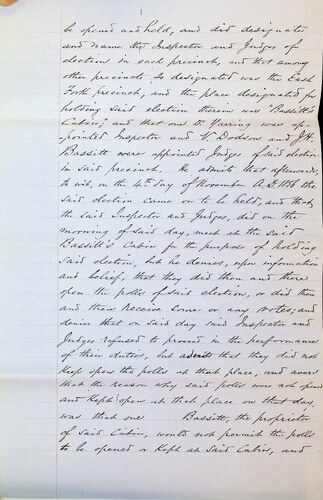 be opened and held, and did designate
and name the Inspector and Judges of
election in each precinct, and that among
other precincts so designated was the East
Fork precinct, and the place designated for
holding said election therein was "Bassitt's
Cabin," and that one D. Yerring was ap-
pointed Inspector and V. Dodson and J.H.
Bassitt were appointed Judges of said election
in said precinct. He admits that afterwards,
to wit, on the 4th day of November A.D. 1856 the
said election came on to be held, and that
the said Inspector and Judges, did on the
morning of said day, meet at the said
Bassitt's Cabin for the purpose of holding
said election, but he denies, upon information
and belief, that they did then and there
open the polls of said election, or did then
and there receive some or any votes, and
denies that on said day said Inspector and
Judges refused to proceed in the performance
of their duties, but admits that they did not
keep open the polls at that place, and avers
that the reason why said polls were not opened
and kept open at that place on that day,
was that one Bassitt, the proprietor
of said Cabin, would not permit the polls
to be opened or kept at said Cabin, and